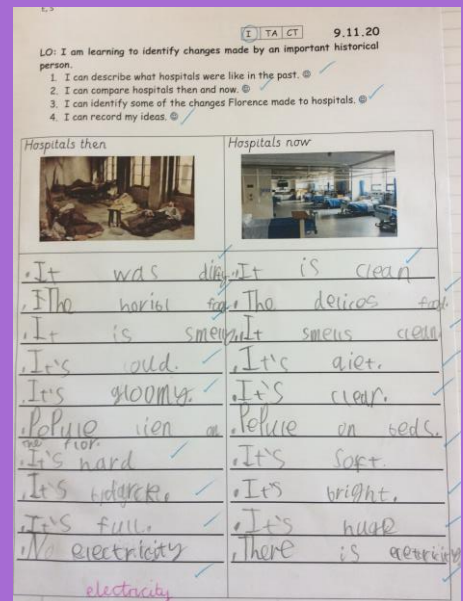 I TA CT 9.11.20
LO: I am learning to identify changes made by an important historical
person.
1. I can describe what hospitals were like in the past. ☺
2. I can compare hospitals then and now. ☺
3. I can identify some of the changes Florence made to hospitals. ☺
4. I can record my ideas. ☺
Hospitals then
Hospitals now
.It was dirty
.It is clean
.The horibl food
.The delices food.
.It is smelly
.It smells clean
.It's loud.
.It's qiet.
.It's gloomy.
.It's clear.
.Pepule lien on
the flor.
.Pepule on beds.
.It's hard
.It's soft.
.It's
.It's bright.
.It's full.
.It's huge
.No electricity
.There is
electricity